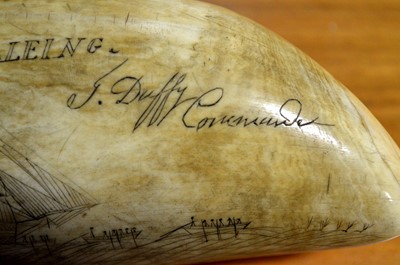 LEING.
J. Duffy Commander